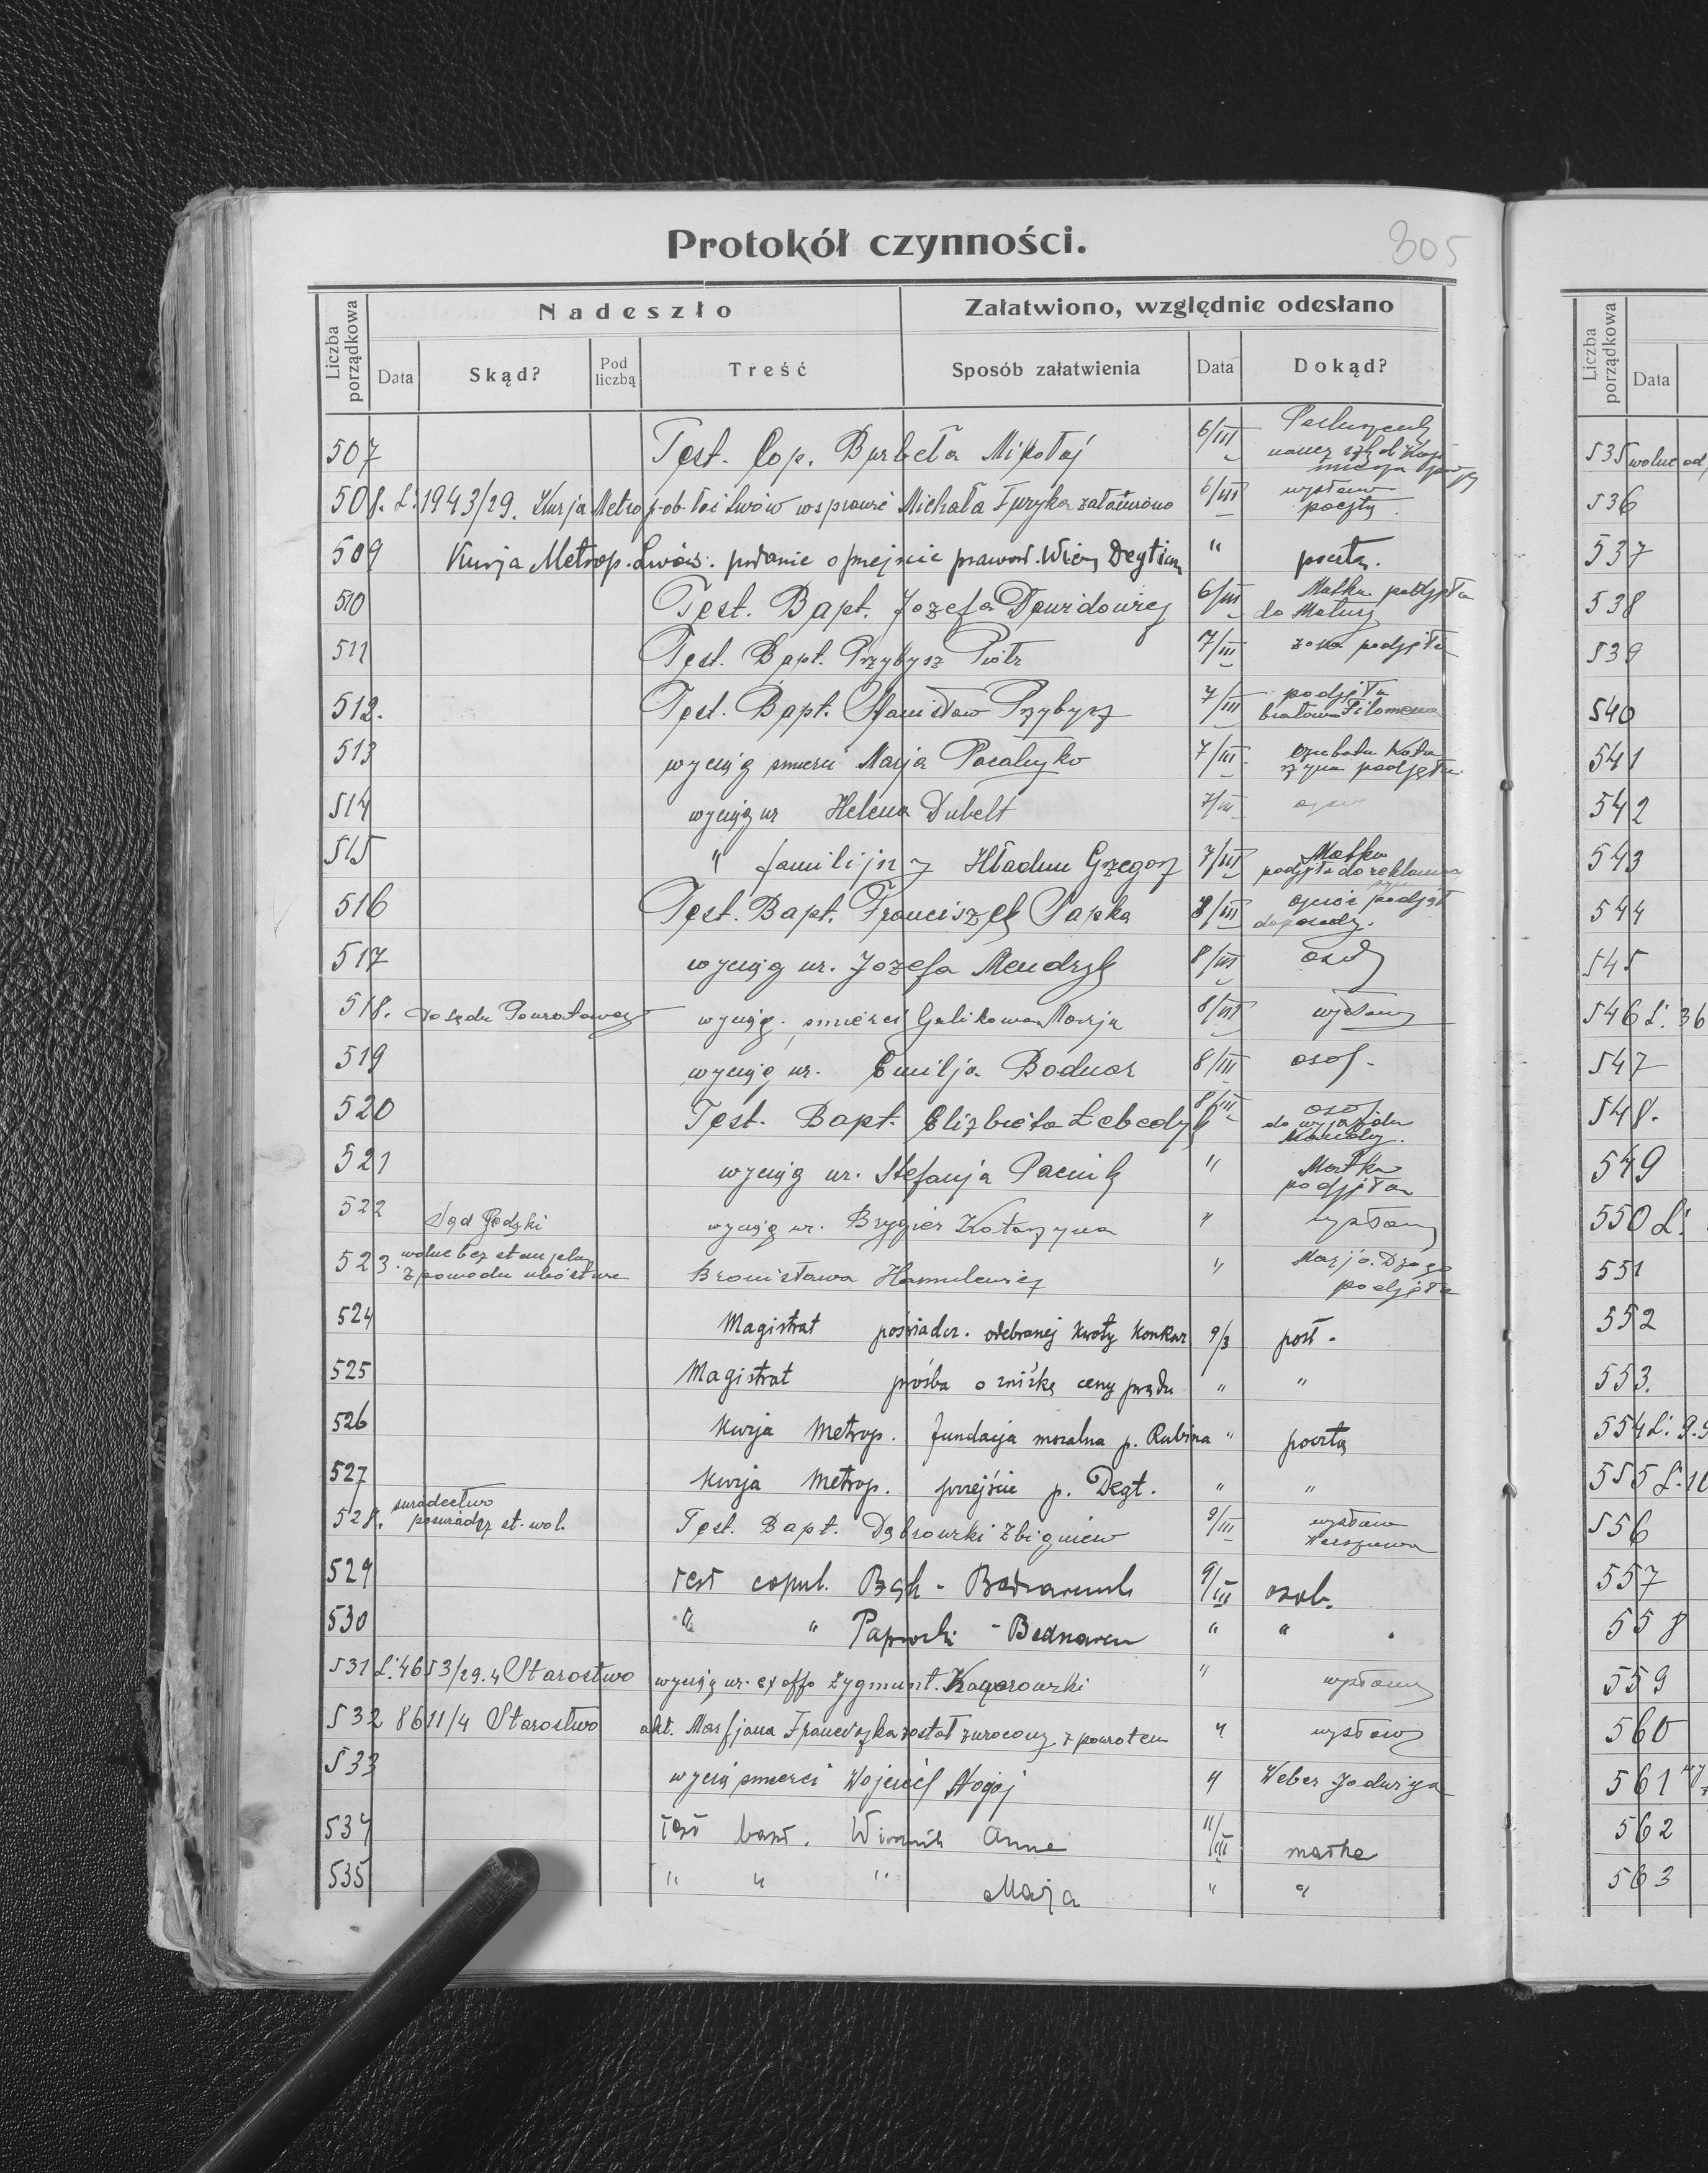 Protokół czynności.
305
Nadeszło
Załatwiono, względnie odesłano
Liczba porządkowa
Data
Skąd?
Pod liczbą
Treść
Sposób załatwienia
Data
Dokąd?
507 Test. Cop. Burbeła Mikołaj 6/III
508. L. 1943/29. Kurja Metrop. ob. łać Lwów w sprawie Michała Furyka załatwiono 6/III wysłano
pocztą.
509 Kurja Metrop. Lwów. podanie o przejście prawosł. Wiery Degtiar " pocztą.
510 Test. Bapt. Jozefa Dawidowicz 6/III Matka podjęła
do Matury
511 Test. Bapt. Przybysz Piotr 7/III żona podjęła
512. Test. Bapt. Stanisław Przybysz 7/III podjęła
bratowa Filomena
513 wyciąg smierci Marja Pacałyko 7/III. Kata
rzyna podjęła
514 wyciąg ur Helena Dubelt 7/III
515 " familijny Hładun Grzegorz 7/III Matka
podjęła do reklamacji
516 Test. Bapt. Franciszek Sapka 8/III ojciec podjął
do posady.
517 wyciąg ur. Jozefa Mendryk 8/III osob
518. do sądu Powiatowego wyciąg. smierci Galikowa Marja 8/III wysłany
519 wyciąg ur. Emilja Bodnar 8/III osob.
520 Test. Bapt. Elizbieta Łebedyk 8/III osob
do wyjazdu
Kanady.
521 wyciąg ur. Stefanja Pacnik " Matka
podjęła
522 Sąd Grodzki wyciąg ur. Brygier Katarzyna " wysłany
523. wolne bez stempla
z powodu ubóstwa Bronisława Hamulewicz " Marja
podjęła
524 Magistrat poświadcz. odebranej kwoty konkur 9/3 post.
525 Magistrat prośba o zniżkę ceny prądu " "
526 Kurja Metrop. fundacja mszalna p. Rubina " pocztą
527 Kurja Metrop. przejście p. Degt. " "
528. świadectwo
poświadcz st. wol. Test. Bapt. Dąbrowski Zbigniew 9/III wysłano
Warszawa
529 Test copul. Bąk - Bednarczuk 9/III osob.
530 " " Paprocki - Bednarcz " "
531 L. 4653/29.4 Starostwo wyciąg ur. ex offo Zygmunt. " wysłany
532 8611/4 Starostwo akt. Marfjana Franciszka został zwrocony z powrotem " wysłany
533 wyciąg smierci Wojciech Nogaj " Weber Jadwiga
534 Test bapt. Anna 11/III matka
535 " " " Maja " "
Liczba porządkowa
Data
535 wolne od
536
537
538
539
540
541
542
543
544
545
546 L. 36
547
548.
549
550 L.
551
552
553.
554 L. 9.9
555 L. 10
556
557
558
559
560
561
562
563